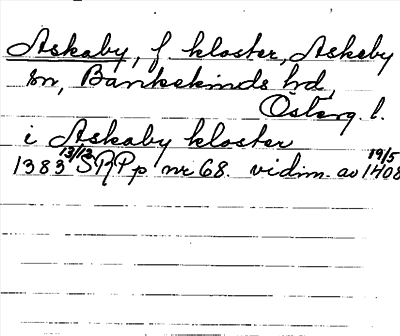 Askaby, f kloster, Askeby
sn, Bankekinds hd,
Österg. l.
i Askaby kloster
1383 13/12 SRPp nr 68. vidim. av 19/5 1408